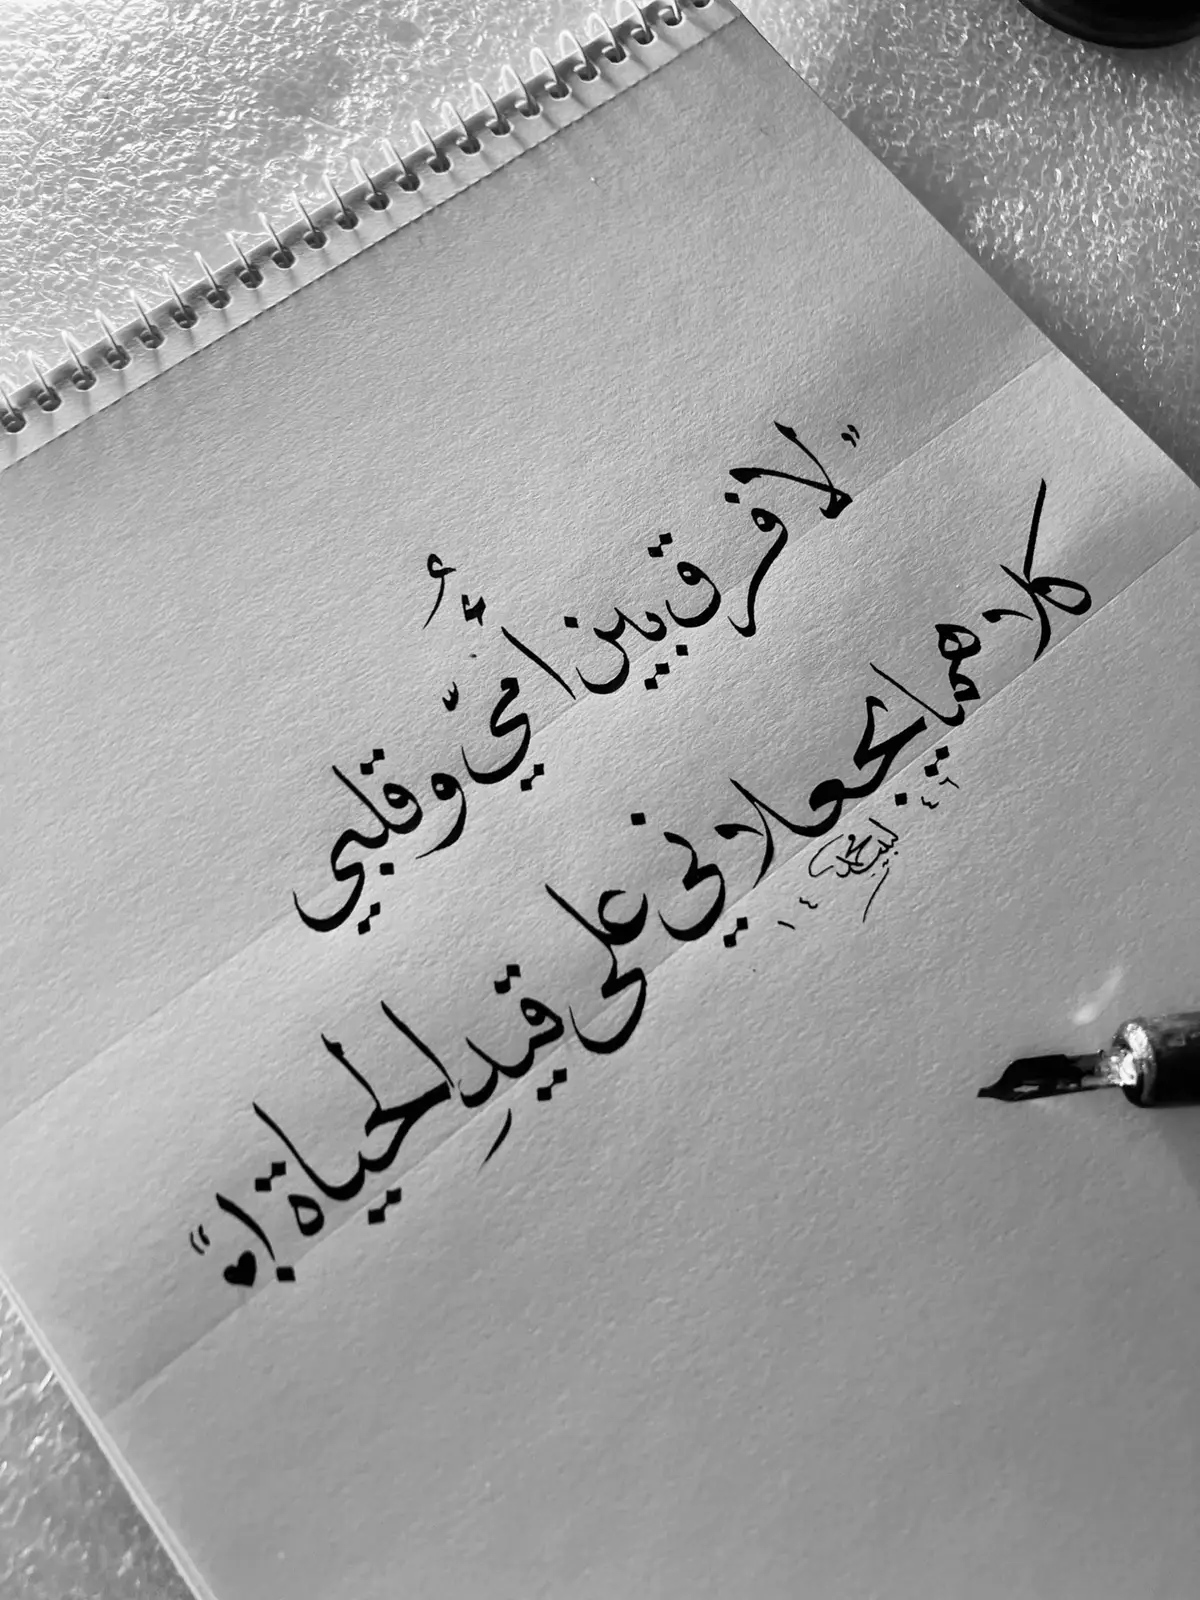 "لا فرق بين أُمّي وقلبي
كلاهما يجعلاني على قيدِ الحياة !"